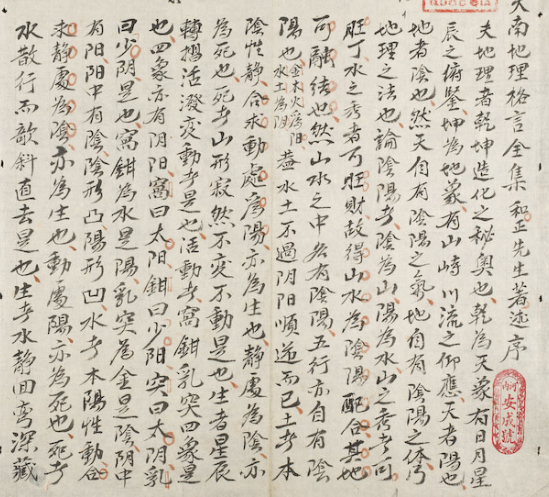 大南地理格言全集 和正先生著述序
夫地理者乾坤造化之秘奥也乾為天象有日月星
辰之俯鍳坤為地象有山峙川流之仰應天者陽也
地者陰也然天自有陰陽之氣地自有陰陽之体
地理之法也論陰陽者陰為山陽為水山之秀者可
旺丁水之秀者可旺財故得山水為陰陽配合其地
可融结也然山水之中各有陰陽五行亦自有陰
陽也金木火為陽水土為阴盖水土不過阴阳順逆而已土者本
陰性静合求動處為陽亦為生也静處為陰亦
為死也死者山形寂然不变不動是也生者星辰
轉摺活潑变動者是也活動者窩鉗乳突四象是
也四象亦有阴阳窩曰太阳鉗曰少阳突曰太阴乳
曰少阴是也窩鉗為水是陽乳突為金是陰阴中
有阳阳中有陰陰形凸陽形凹水者本陽性動合
求静處為陰亦為生也動處陽亦為死也死者
水散行而欹斜直去是也生者水静囬弯深藏
河内
安成號